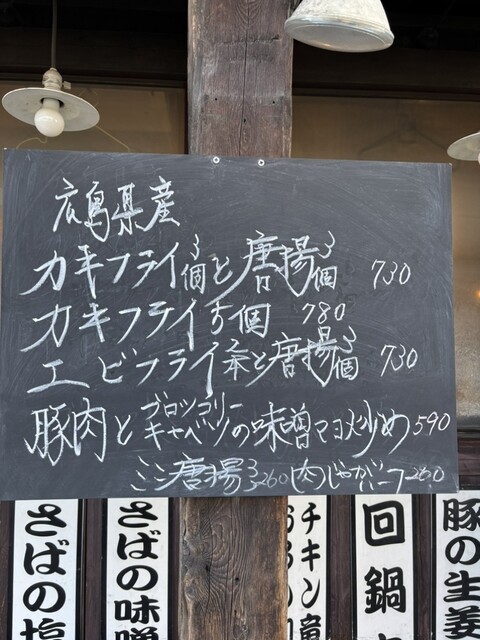 広島県産
カキフライ3個と唐揚3個 730
カキフライ5個 780
エビフライ2本と唐揚3個 730
豚肉とブロッコリーキャベツの味噌マヨ炒め 590
ミニ唐揚3ヶ260 肉じゃがハーフ260
さばの塩
さばの味噌
チキン
回鍋
豚の生姜